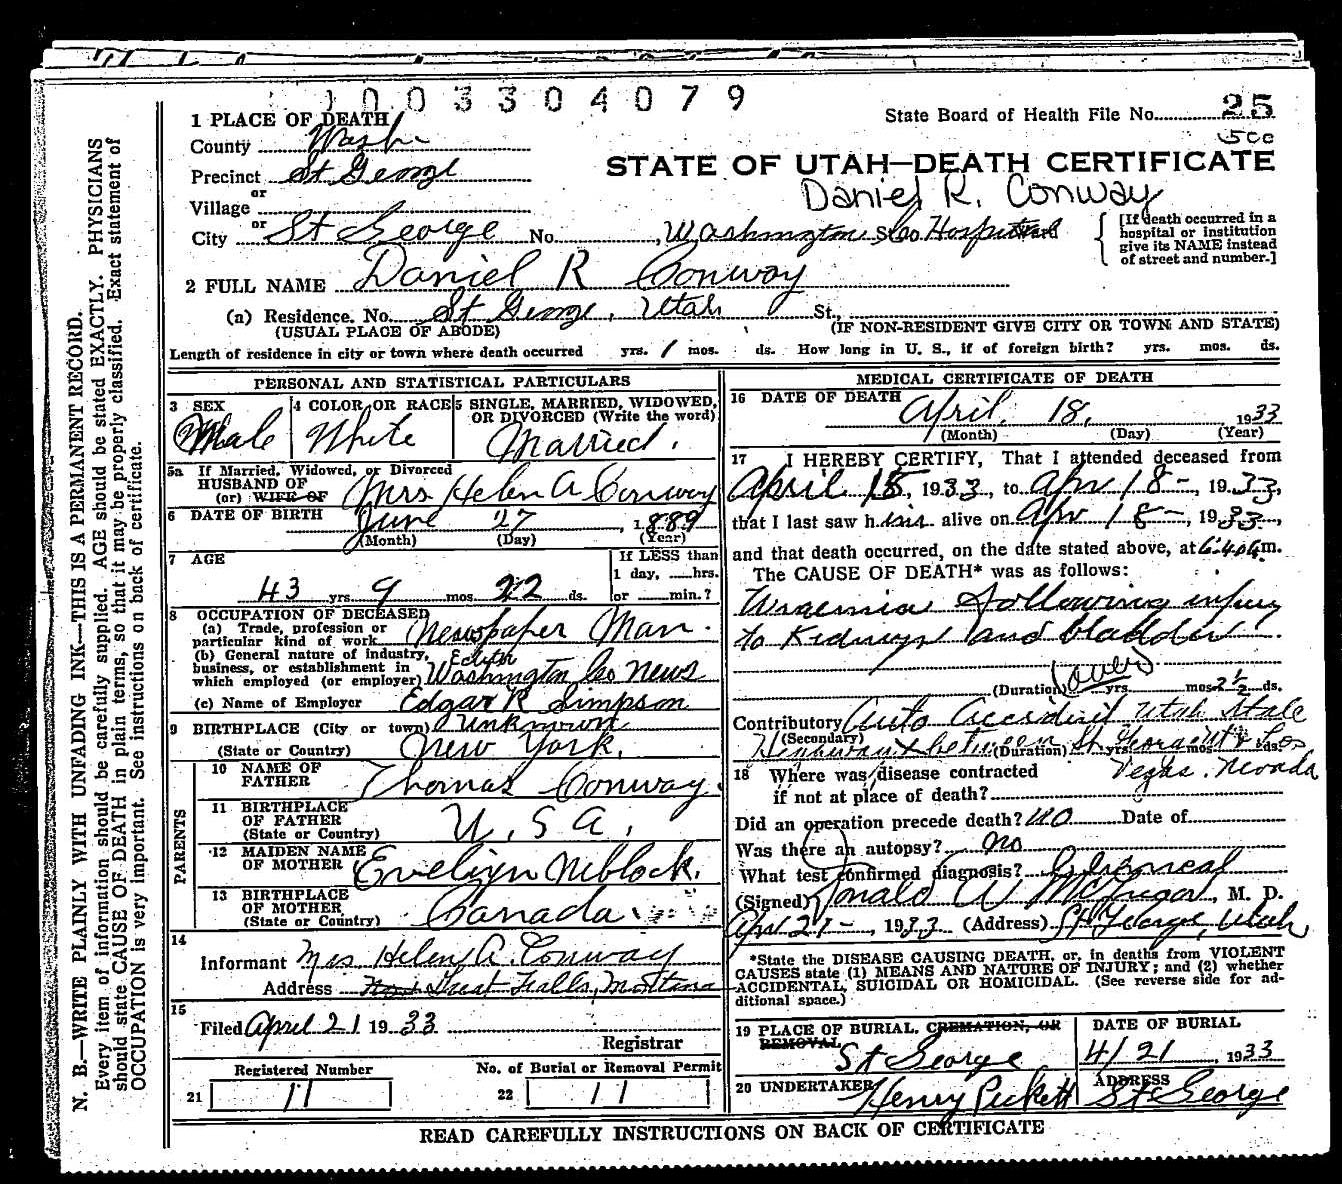 1003304079
State Board of Health File No. 25
500
1 PLACE OF DEATH
County Wash
Precinct St George
STATE OF UTAH—DEATH CERTIFICATE
or
Village
Daniel R. Conway
or
City St George No. , Washington Co Hospital
[If death occurred in a hospital or institution give its NAME instead of street and number.]
2 FULL NAME Daniel R Conway
(a) Residence. No. St George, Utah St.,
(USUAL PLACE OF ABODE) (IF NON-RESIDENT GIVE CITY OR TOWN AND STATE)
Length of residence in city or town where death occurred yrs. 1 mos. ds. How long in U. S., if of foreign birth? yrs. mos. ds.
PERSONAL AND STATISTICAL PARTICULARS
3 SEX Male
4 COLOR OR RACE White
5 SINGLE, MARRIED, WIDOWED, OR DIVORCED (Write the word) Married.
5a If Married, Widowed, or Divorced
HUSBAND OF
(or) WIFE OF Mrs Helen A Conway
6 DATE OF BIRTH June 27, 1889
(Month) (Day) (Year)
7 AGE
43 yrs. 9 mos. 22 ds.
If LESS than
1 day, hrs.
or min.?
8 OCCUPATION OF DECEASED
(a) Trade, profession or
particular kind of work Newspaper Man.
(b) General nature of industry,
business, or establishment in
which employed (or employer) Editor Washington Co News
(c) Name of Employer Edgar R Simpson
9 BIRTHPLACE (City or town) Unknown
(State or Country) New York.
PARENTS
10 NAME OF
FATHER Thomas Conway.
11 BIRTHPLACE
OF FATHER
(State or Country) U. S A.
12 MAIDEN NAME
OF MOTHER Evelyn Niblock.
13 BIRTHPLACE
OF MOTHER
(State or Country) Canada.
14
Informant Mrs Helen A. Conway
Address Great Falls, Montana
15
Filed April 21 1933
Registrar
Registered Number
21 11
No. of Burial or Removal Permit
22 11
MEDICAL CERTIFICATE OF DEATH
16 DATE OF DEATH April, 18, 1933
(Month) (Day) (Year)
17 I HEREBY CERTIFY, That I attended deceased from
April 15, 1933, to Apr 18-, 1933,
that I last saw him alive on Apr 18-, 1933,
and that death occurred, on the date stated above, at 6:40 a m.
The CAUSE OF DEATH* was as follows:
Uraemia following injury
to Kidneys and bladder.
(over)
(Duration) yrs. mos. 2½ ds.
Contributory Auto Accident Utah State
(Secondary)
Highway between St George & Los
(Duration) yrs. mos. ds.
Vegas. Nevada
18 Where was disease contracted
if not at place of death?
Did an operation precede death? no Date of
Was there an autopsy? no
What test confirmed diagnosis?
(Signed) Donald A McGregor, M. D.
Apr 21-, 1933 (Address) St George, Utah,
*State the DISEASE CAUSING DEATH, or, in deaths from VIOLENT
CAUSES state (1) MEANS AND NATURE OF INJURY; and (2) whether
ACCIDENTAL, SUICIDAL OR HOMICIDAL. (See reverse side for ad-
ditional space.)
19 PLACE OF BURIAL, CREMATION, OR
REMOVAL
St George
DATE OF BURIAL
4/21, 1933
20 UNDERTAKER Henry Pickett
ADDRESS
St George
READ CAREFULLY INSTRUCTIONS ON BACK OF CERTIFICATE
N. B.—WRITE PLAINLY WITH UNFADING INK—THIS IS A PERMANENT RECORD.
Every item of information should be carefully supplied. AGE should be stated EXACTLY. PHYSICIANS
should state CAUSE OF DEATH in plain terms, so that it may be properly classified. Exact statement of
OCCUPATION is very important. See instructions on back of certificate.